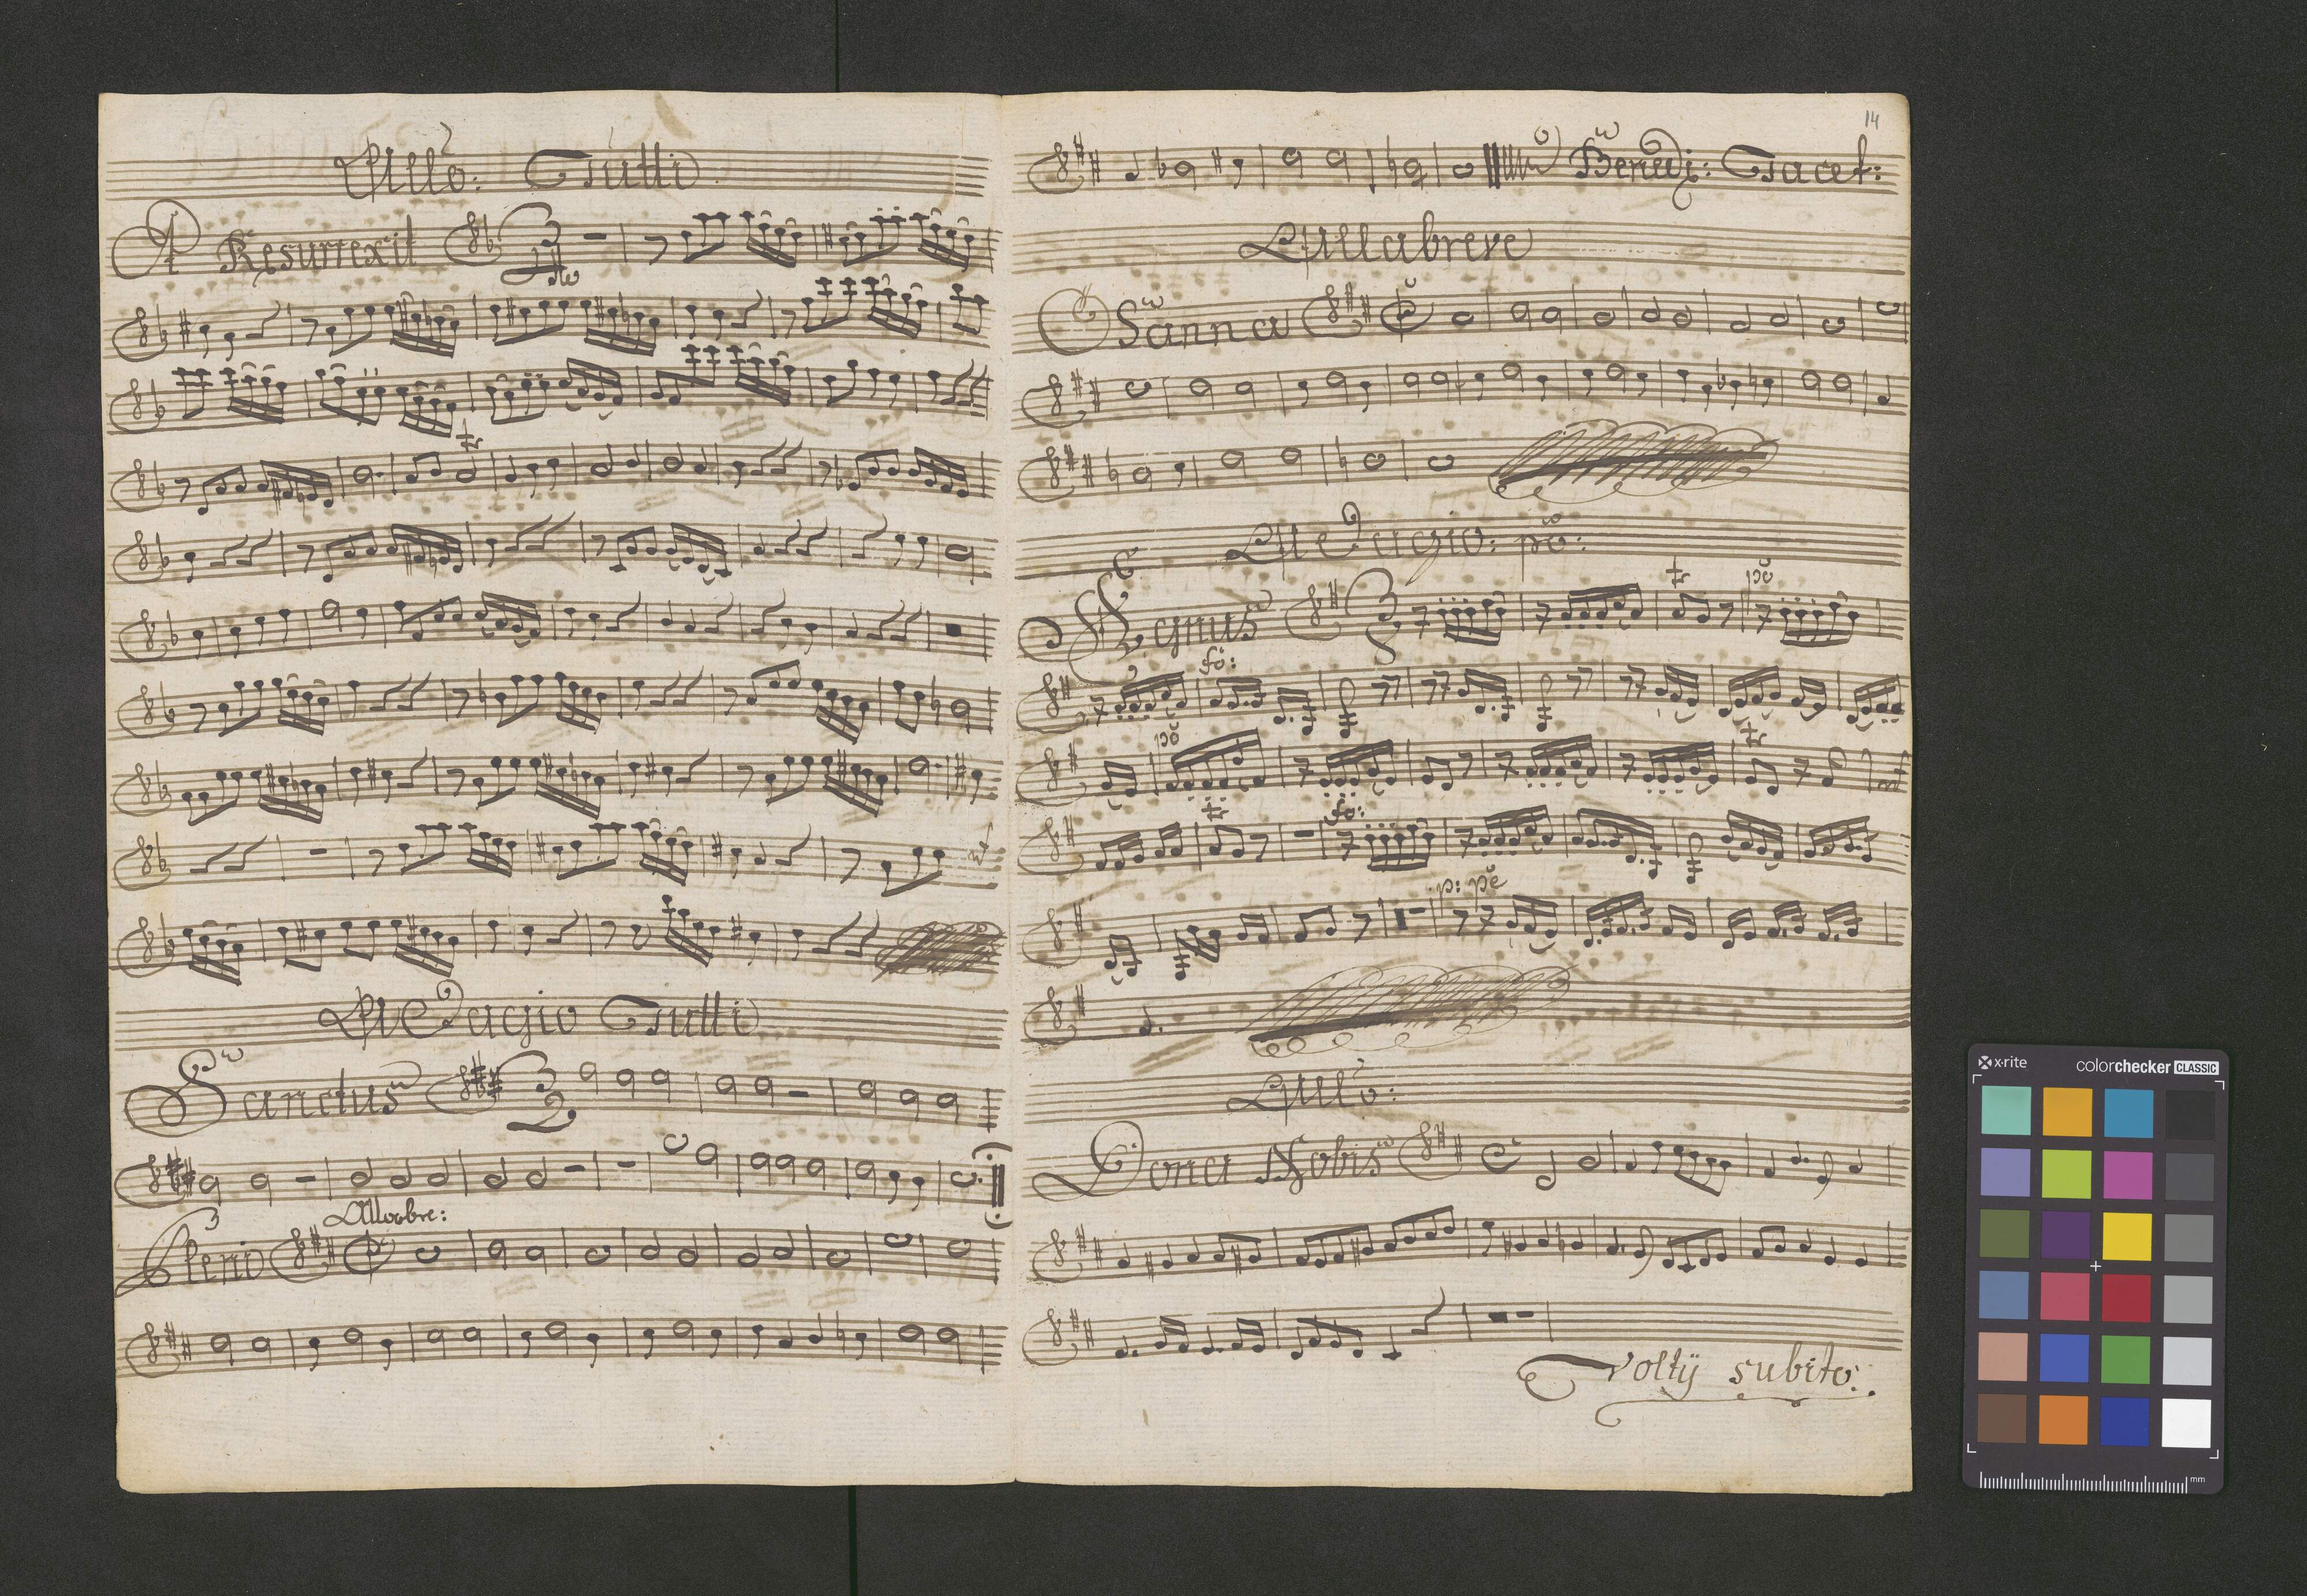 Allo: Tutti
A Resurrexit 3/4
tr
A Dagio Tutti
Sanctus 3/2
Allobre:
Pleni
14
Benedi: Tacet:
Allabreve
Osanna
A Dagio: po:
Agnus 3/8 tr po
fo:
po tr
tr fo:
p: pe
Allo:
Dona Nobis
volty subito:
x-rite colorchecker CLASSIC
mm